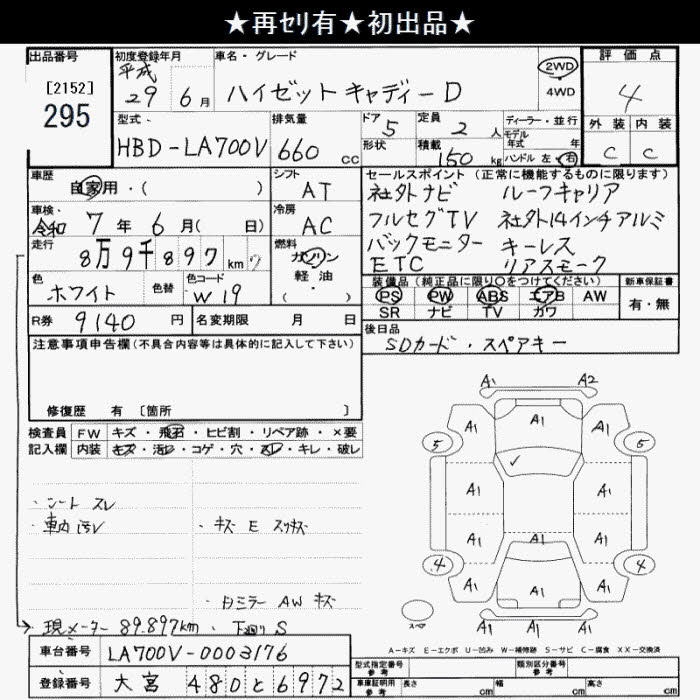 ★再セリ有★初出品★
出品番号
[2152]
295
初度登録年月
平成
29年 6月
車名・グレード
ハイゼットキャディーD
2WD
4WD
評価点
4
外装 内装
C C
型式
HBD-LA700V
排気量
660 CC
ドア 5
形状
定員 2 人
積載 150 kg
ディーラー・並行
モデル年式 年
ハンドル 左・右
車歴
自家用・( )
シフト
AT
車検
令和 7年 6月( 日)
冷房
AC
走行
8万9千897km
燃料
ガソリン
軽油
( )
色
ホワイト
色替
色コード
W19
R券 9140 円
名変期限 月 日
セールスポイント(正常に機能するものに限ります)
社外ナビ ルーフキャリア
フルセグTV 社外14インチアルミ
バックモニター キーレス
ETC リアスモーク
装備品(純正品に限り○をつけてください)
PS PW ABS エアB AW
SR ナビ TV カワ
新車保証書
有・無
後日品
SDカード・スペアキー
注意事項申告欄(不具合内容等は具体的に記入して下さい)
修復歴 有 [箇所 ]
検査員 FW キズ・飛石・ヒビ割・リペア跡・×要
記入欄 内装 キズ・汚レ・コゲ・穴・スレ・キレ・破レ
・シート スレ
・車内汚レ
・キズ E スリキズ
・ミラー AW キズ
・現メーター 89.897km
・下廻り S
A1 A2
A1 A1 A1
5 5
A1 A1
A1 A1 A1
4 4
A1 A1 A1
A1 A1 A1
スペア
A-キズ E-エクボ U-凹み W-補修跡 S-サビ C-腐食 XX-交換済
車台番号 LA700V-0003176
登録番号 大宮 480と6972
型式指定番号 参考
類別区分番号 参考
車庫証明用 参考 長さ cm 幅 cm 高さ cm